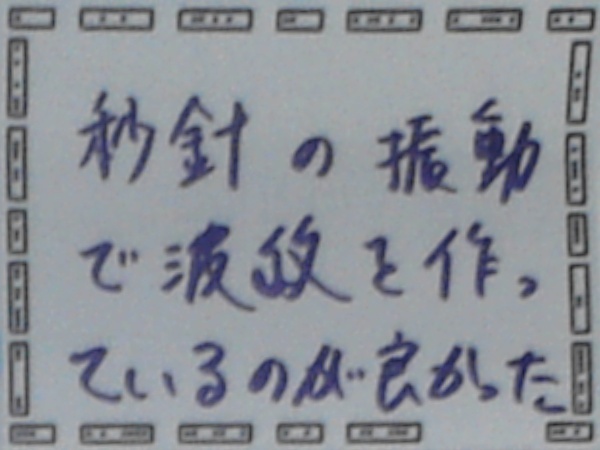 秒針の振動
で波紋を作っ
ているのが良かった